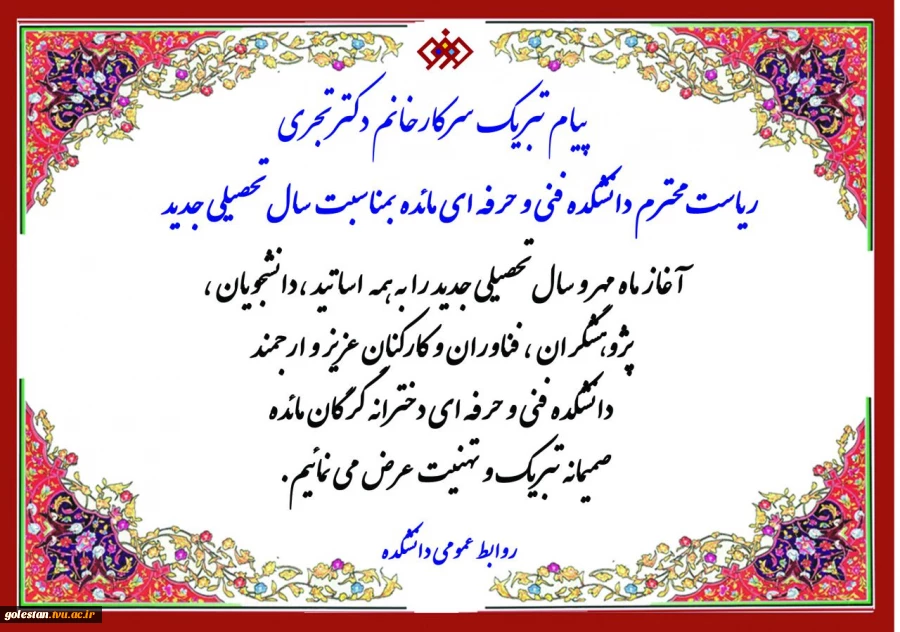 پیام تبریک سرکارخانم دکتر تجری
ریاست محترم دانشکده فنی و حرفه ای مائده بمناسبت سال تحصیلی جدید
آغاز ماه مهر و سال تحصیلی جدید را به همه اساتید ، دانشجویان ،
پژوهشگران ، فناوران و کارکنان عزیز و ارجمند
دانشکده فنی و حرفه ای دخترانه گرگان مائده
صمیمانه تبریک و تهنیت عرض می نمائیم .
روابط عمومی دانشکده
golestan.tvu.ac.ir